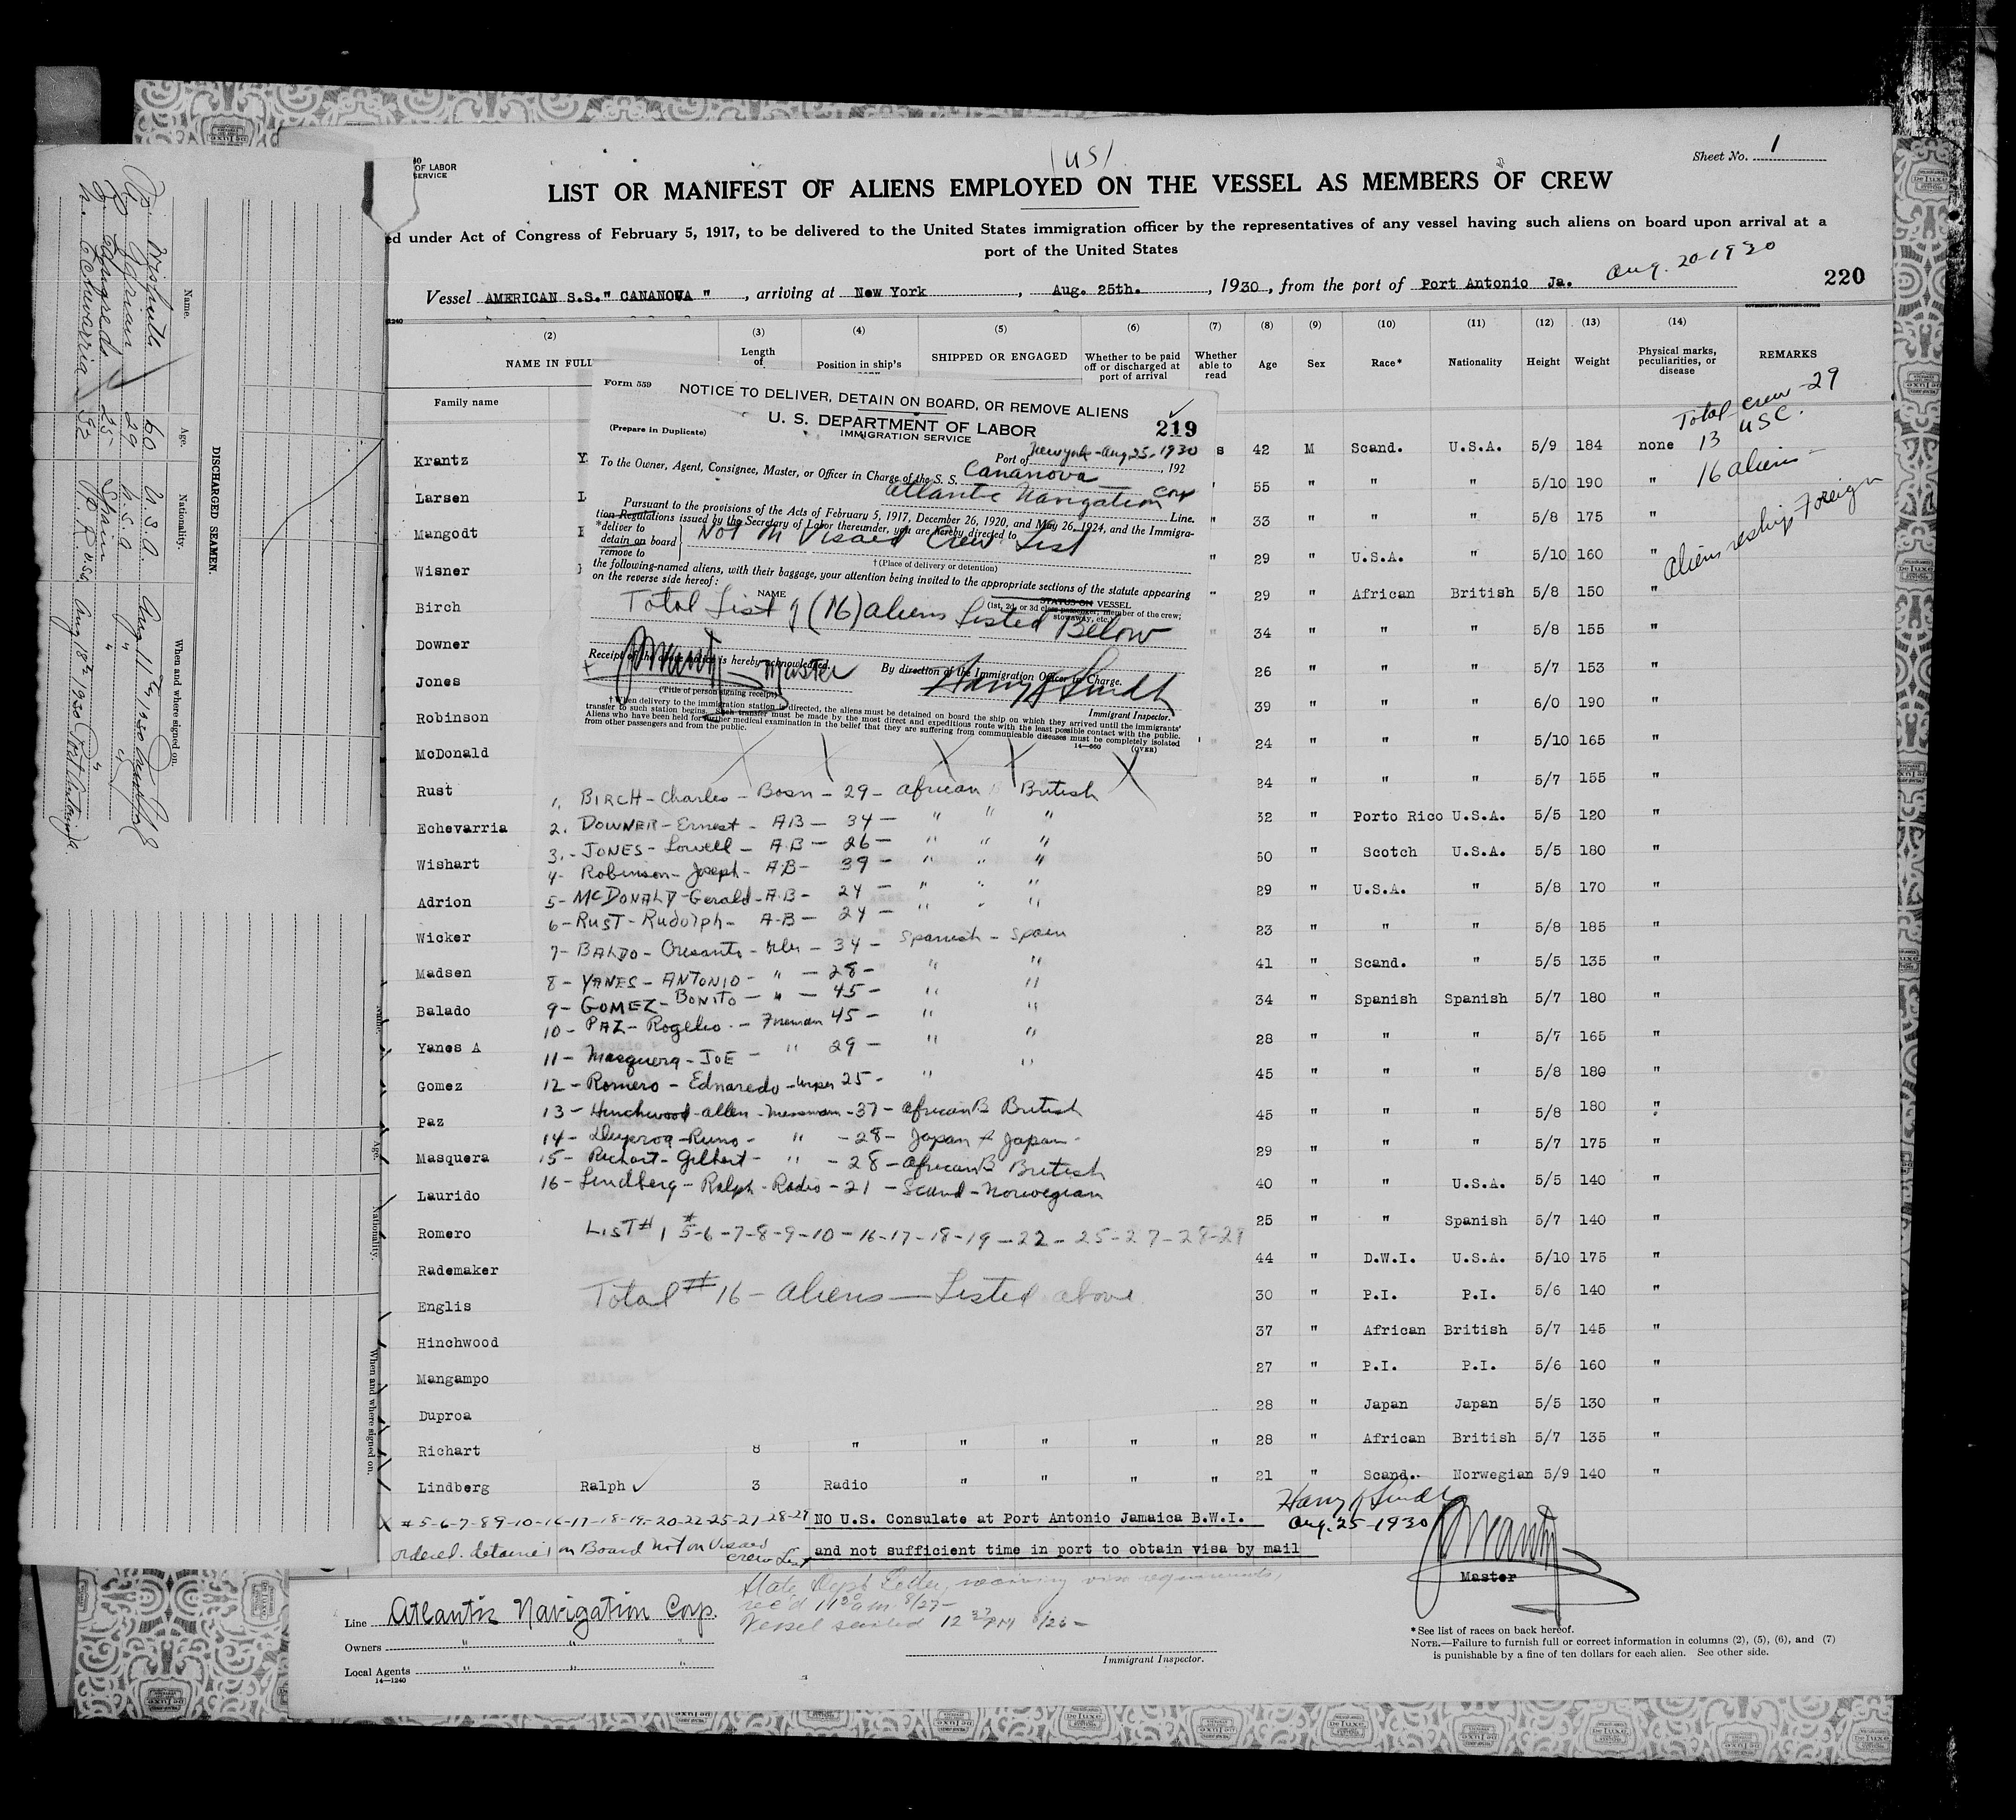 OF LABOR
SERVICE
US
Sheet No. 1
LIST OR MANIFEST OF ALIENS EMPLOYED ON THE VESSEL AS MEMBERS OF CREW
ed under Act of Congress of February 5, 1917, to be delivered to the United States immigration officer by the representatives of any vessel having such aliens on board upon arrival at a
port of the United States
Aug. 20-1930
Vessel AMERICAN S.S." CANANOVA ", arriving at New York, Aug. 25th., 1930, from the port of Port Antonio Ja.
220
(2) (3) (4) (5) (6) (7) (8) (9) (10) (11) (12) (13) (14)
NAME IN FULL Length of Position in ship's SHIPPED OR ENGAGED Whether to be paid off or discharged at port of arrival Whether able to read Age Sex Race* Nationality Height Weight Physical marks, peculiarities, or disease REMARKS
Family name
Total crew - 29
13 USC.
16 aliens -
Aliens reship Foreign
Krantz 42 M Scand. U.S.A. 5/9 184 none
Larsen 55 " " " 5/10 190 "
Mangodt 33 " " " 5/8 175 "
Wisner 29 " U.S.A. " 5/10 160 "
Birch 29 " African British 5/8 150 "
Downer 34 " " " 5/8 155 "
Jones 26 " " " 5/7 153 "
Robinson 39 " " " 6/0 190 "
McDonald 24 " " " 5/10 165 "
Rust 24 " " " 5/7 155 "
Echevarria 32 " Porto Rico U.S.A. 5/5 120 "
Wishart 60 " Scotch U.S.A. 5/5 180 "
Adrion 29 " U.S.A. " 5/8 170 "
Wicker 23 " " " 5/8 185 "
Madsen 41 " Scand. " 5/5 135 "
Balado 34 " Spanish Spanish 5/7 180 "
Yanes A 28 " " " 5/7 165 "
Gomez 45 " " " 5/8 180 "
Paz 45 " " " 5/8 180 "
Masquera 29 " " " 5/7 175 "
Laurido 40 " " U.S.A. 5/5 140 "
Romero 25 " " Spanish 5/7 140 "
Rademaker 44 " D.W.I. U.S.A. 5/10 175 "
Englis 30 " P.I. P.I. 5/6 140 "
Hinchwood 37 " African British 5/7 145 "
Mangampo 27 " P.I. P.I. 5/6 160 "
Duproa 28 " Japan Japan 5/5 130 "
Richart 8 " " " " " 28 " African British 5/7 135 "
Lindberg Ralph 3 Radio " " " " 21 " Scand. Norwegian 5/9 140 "
Form 559
NOTICE TO DELIVER, DETAIN ON BOARD, OR REMOVE ALIENS
(Prepare in Duplicate)
U. S. DEPARTMENT OF LABOR
IMMIGRATION SERVICE
219
Port of New York - Aug 25, 1930, 192
To the Owner, Agent, Consignee, Master, or Officer in Charge of the S. S. Cananova
Atlantic Navigation Corp Line.
Pursuant to the provisions of the Acts of February 5, 1917, December 26, 1920, and May 26, 1924, and the Immigra-
tion Regulations issued by the Secretary of Labor thereunder, you are hereby directed to
*deliver to
detain on board
remove to
Not on Visaed Crew List
†(Place of delivery or detention)
the following-named aliens, with their baggage, your attention being invited to the appropriate sections of the statute appearing
on the reverse side hereof:
NAME
STATUS ON VESSEL
(1st, 2d, or 3d class passenger, member of the crew; stowaway, etc.)
Total List of (16) aliens Listed Below
Receipt of the above notice is hereby acknowledged.
Master
(Title of person signing receipt)
By direction of the Immigration Officer in Charge.
Immigrant Inspector.
†When delivery to the immigration station is directed, the aliens must be detained on board the ship on which they arrived until the immigrants'
transfer to such station begins. Such transfer must be made by the most direct and expeditious route with the least possible contact with the public.
Aliens who have been held for further medical examination in the belief that they are suffering from communicable diseases must be completely isolated
from other passengers and from the public.
14—660 (OVER)
1. BIRCH - Charles - Bosn - 29 - African British
2. DOWNER - Ernest - AB - 34 - " " "
3. - JONES - Lowell - A-B - 26 - " " "
4- Robinson - Joseph - A-B - 39 - " " "
5- McDONALD - Gerald - A-B - 24 - " " "
6- RUST - Rudolph - A-B - 24 - " " "
7- BALDO - - 34 - Spanish - Spain
8- YANES - ANTONIO - " - 28 - " "
9- GOMEZ - BONITO - " - 45 - " "
10- PAZ - Rogelio - Fireman 45 - " "
11- Masquera - JOE - " 29 - " "
12- Romero - Ednaredo - wiper 25 - "
13- Hinchwood - allen - messman - 37 - African B British
14- - " - 28 - Japan & Japan -
15- Richart - Gilbert - " - 28 - African B British
16- Lindberg - Ralph - Radio - 21 - Scand - Norwegian
LIST # 1 # 5-6-7-8-9-10-16-17-18-19-22-25-27-28-29
Total # 16 - aliens - Listed above
#5-6-7-8 9-10-16-17-18-19-20-22-25-27-28-29
ordered detained on Board Not on Visaed
Crew List
NO U.S. Consulate at Port Antonio Jamaica B.W.I.
and not sufficient time in port to obtain visa by mail
Aug. 25-1930
Master
State Dept Letter, waiving visa requirements,
rec'd 11 a.m. 8/27-
Vessel sailed 12 PM 8/26-
Line Atlantic Navigation Corp.
Owners " " "
Local Agents " " "
14—1240
Immigrant Inspector.
*See list of races on back hereof.
NOTE.—Failure to furnish full or correct information in columns (2), (5), (6), and (7)
is punishable by a fine of ten dollars for each alien. See other side.
DISCHARGED SEAMEN.
Name. Age. Nationality. When and where signed on.
60 U.S.A. Aug 11th, 1930
Adrian 29 U.S.A. " "
25 Spain " "
Echevarria 32 P. R. USA Aug 18th 1930 Port Antonio Ja.
Age. Nationality. When and where signed on.